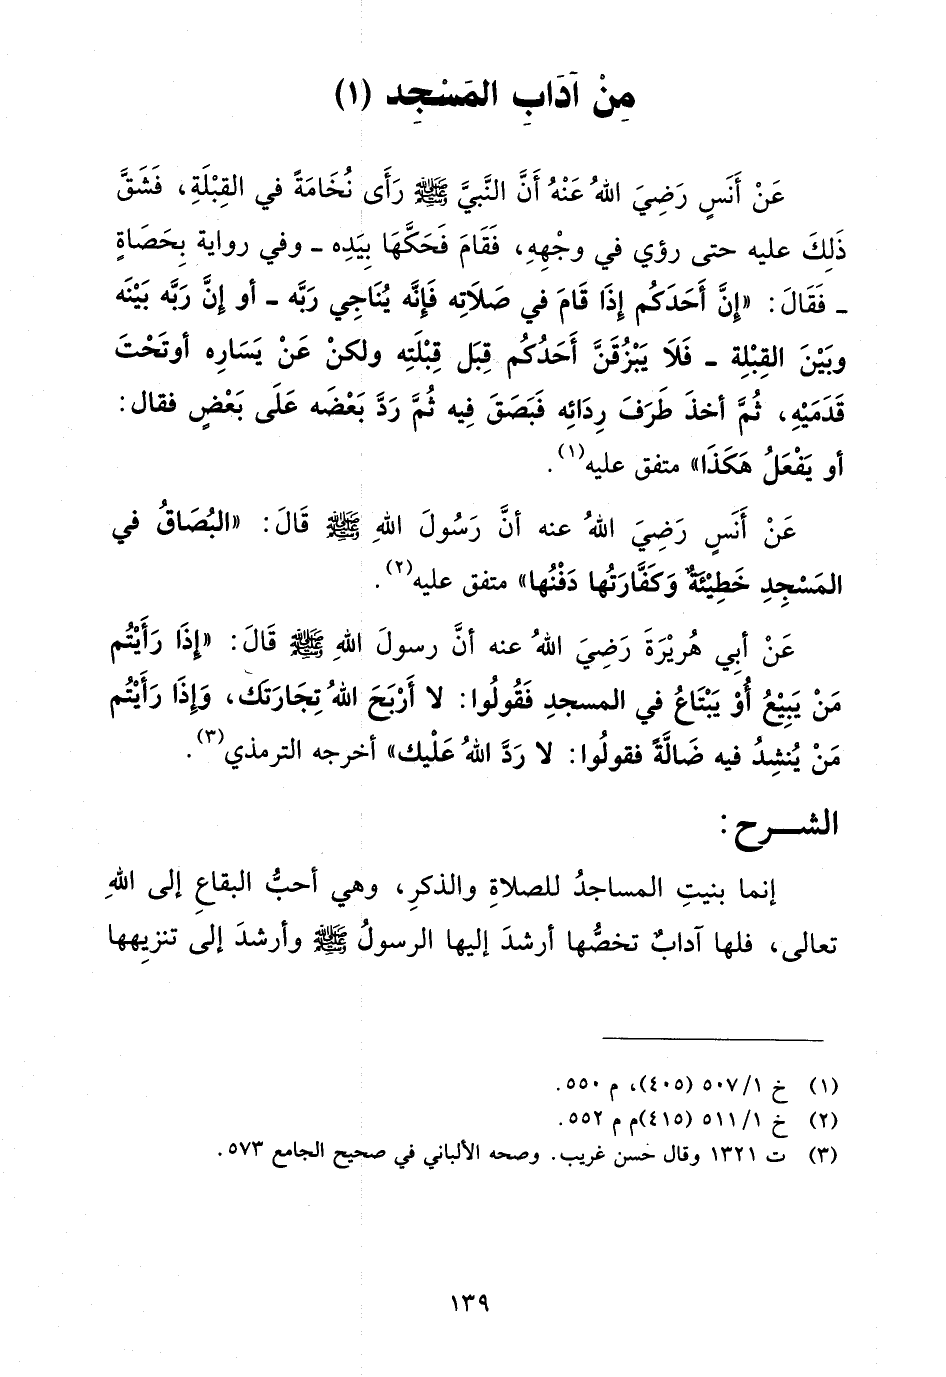 مِنْ آدَابِ المَسْجِد (١)
عَنْ أَنَسٍ رَضِيَ اللهُ عَنْهُ أَنَّ النَّبِيَّ ﷺ رَأَى نُخَامَةً في القِبْلَةِ، فَشَقَّ
ذَلِكَ عليه حتى رؤي في وجْهِهِ، فَقَامَ فَحَكَّهَا بِيَدِه ـ وفي رواية بِحَصَاةٍ
ـ فَقَالَ: «إِنَّ أَحَدَكُم إِذَا قَامَ في صَلَاتِه فَإِنَّه يُنَاجِي رَبَّه ـ أو إِنَّ رَبَّه بَيْنَه
وبَيْنَ القِبْلة ـ فَلَا يَبْزُقَنَّ أَحَدُكُم قِبَل قِبْلَتِه ولكنْ عَنْ يَسَارِه أوتَحْتَ
قَدَمَيْهِ، ثُمَّ أخذَ طَرَفَ رِدَائِه فَبَصَقَ فيه ثُمَّ رَدَّ بَعْضَه عَلَى بَعْضٍ فقال:
أو يَفْعَلُ هَكَذَا» متفق عليه(١).
عَنْ أَنَسٍ رَضِيَ اللهُ عنه أنَّ رَسُولَ اللهِ ﷺ قَالَ: «البُصَاقُ في
المَسْجِدِ خَطِيْئَةٌ وَكَفَّارَتُها دَفْنُها» متفق عليه(٢).
عَنْ أبي هُرِيْرَةَ رَضِيَ اللهُ عنه أنَّ رسولَ اللهِ ﷺ قَالَ: «إِذَا رَأَيْتُم
مَنْ يَبِيْعُ أَوْ يَبْتَاعُ في المسجدِ فَقُولُوا: لا أَرْبَحَ اللهُ تِجَارَتَك، وَإِذَا رَأَيْتُم
مَنْ يُنشِدُ فيه ضَالَّةً فقولُوا: لا رَدَّ اللهُ عَلْيك» أخرجه الترمذي(٣).
الشـــرح:
إنما بنيتِ المساجدُ للصلاةِ والذكرِ، وهي أحبُّ البقاعِ إلى اللهِ
تعالى، فلها آدابٌ تخصُّها أرشدَ إليها الرسولُ ﷺ وأرشدَ إلى تنزيهِها
(١) خ ٥٠٧/١ (٤٠٥)، م ٥٥٠.
(٢) خ ٥١١/١ (٤١٥)م م ٥٥٢.
(٣) ت ١٣٢١ وقال حسن غريب. وصحه الألباني في صحيح الجامع ٥٧٣.
١٣٩